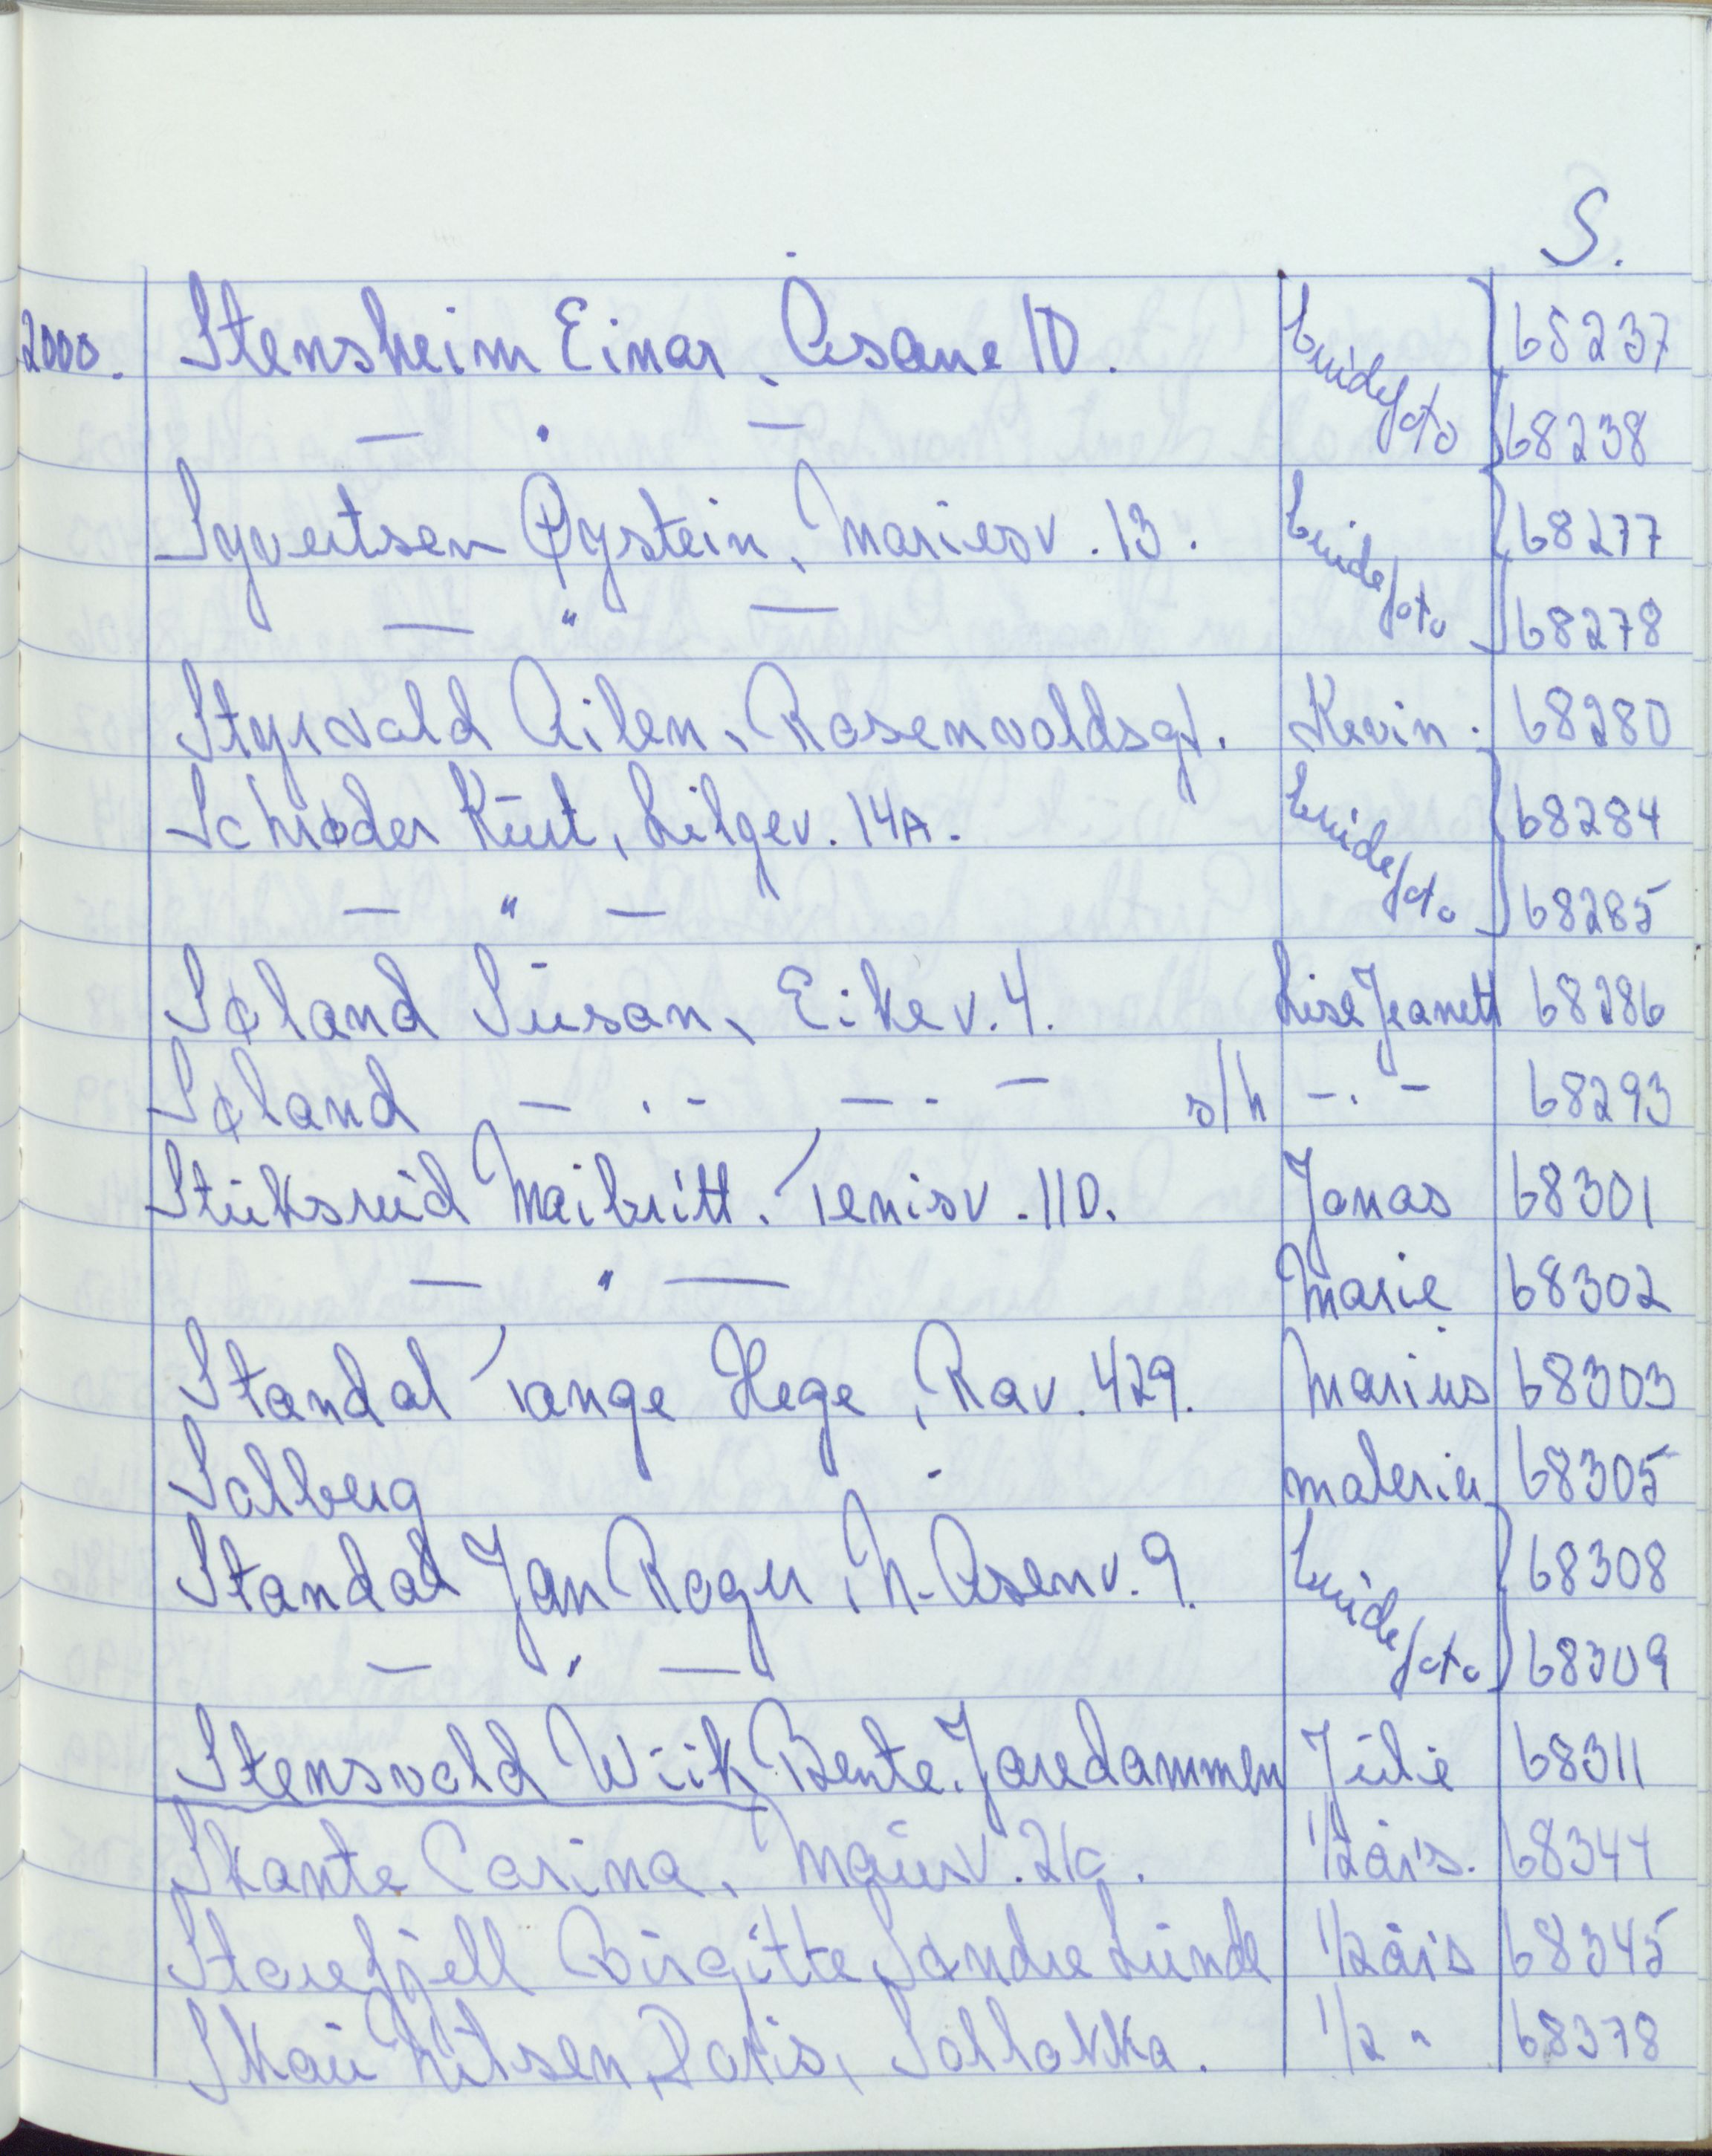 S.
2000. Stensheim Einar, Åsane 10. brudefoto 68237
— " — 68238
Syvertsen Øystein, Mariesv. 13. brudefoto 68277
— " — 68278
Styrvold Ailen, Rosenvoldsgt. Kevin. 68280
Schrøder Kurt, Liljev. 14A. brudefoto 68284
— " — 68285
Søland Susan, Eikev. 4. Lise Jeanett 68286
Søland — . - — . - — s/h - . - 68293
Stuksrud Maibritt. Tenisv. 11D. Jonas 68301
— " — Marie 68302
Standal Tange Hege, Rav. 429. Marius 68303
Solberg - malerier 68305
Standal Jan Roger, N. Åsenv. 9. brudefoto 68308
— " — 68309
Stensvold Wiik Bente. Joredammen Julie 68311
Skante Carina, Maurv. 2c. 1/2 års. 68344
Storefjell Birgitte, Søndre Lunde 1/2 års 68345
Skau Nilsen, Doris, Solløkka. 1/2 " 68378